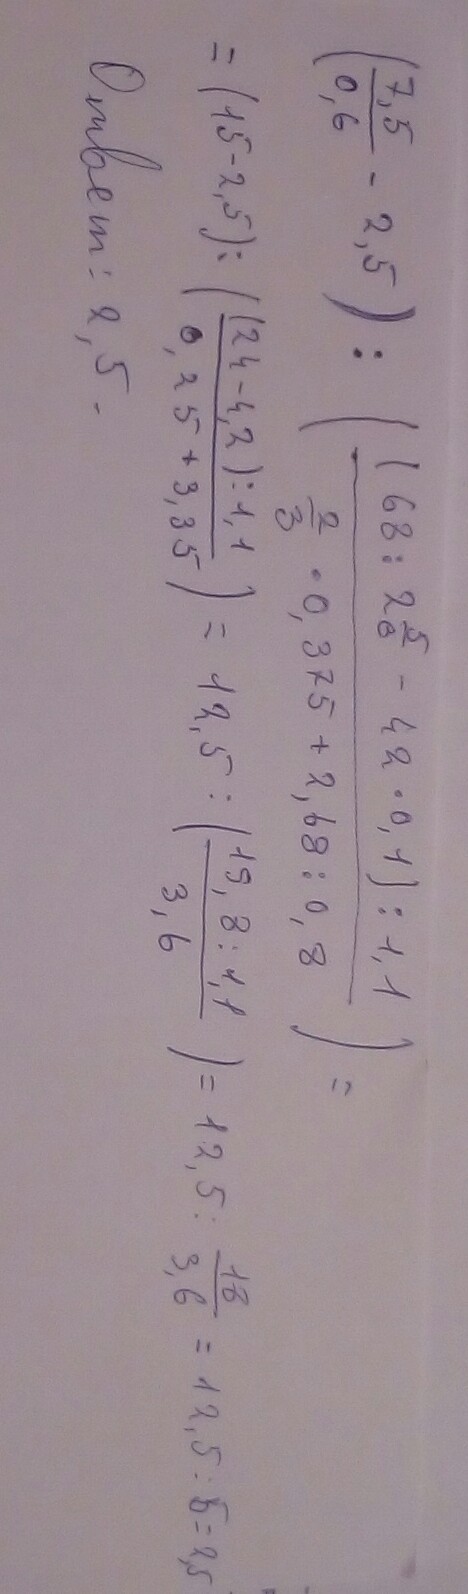 (7,5/0,6 - 2,5) : ((68 : 2 5/6 - 42 · 0,1) : 1,1 / 2/3 · 0,375 + 2,68 : 0,8) =
= (15 - 2,5) : ((24 - 4,2) : 1,1 / 0,25 + 3,35) = 12,5 : (19,8 : 1,1 / 3,6) = 12,5 : 18/3,6 = 12,5 : 5 = 2,5
Ответ: 2,5.